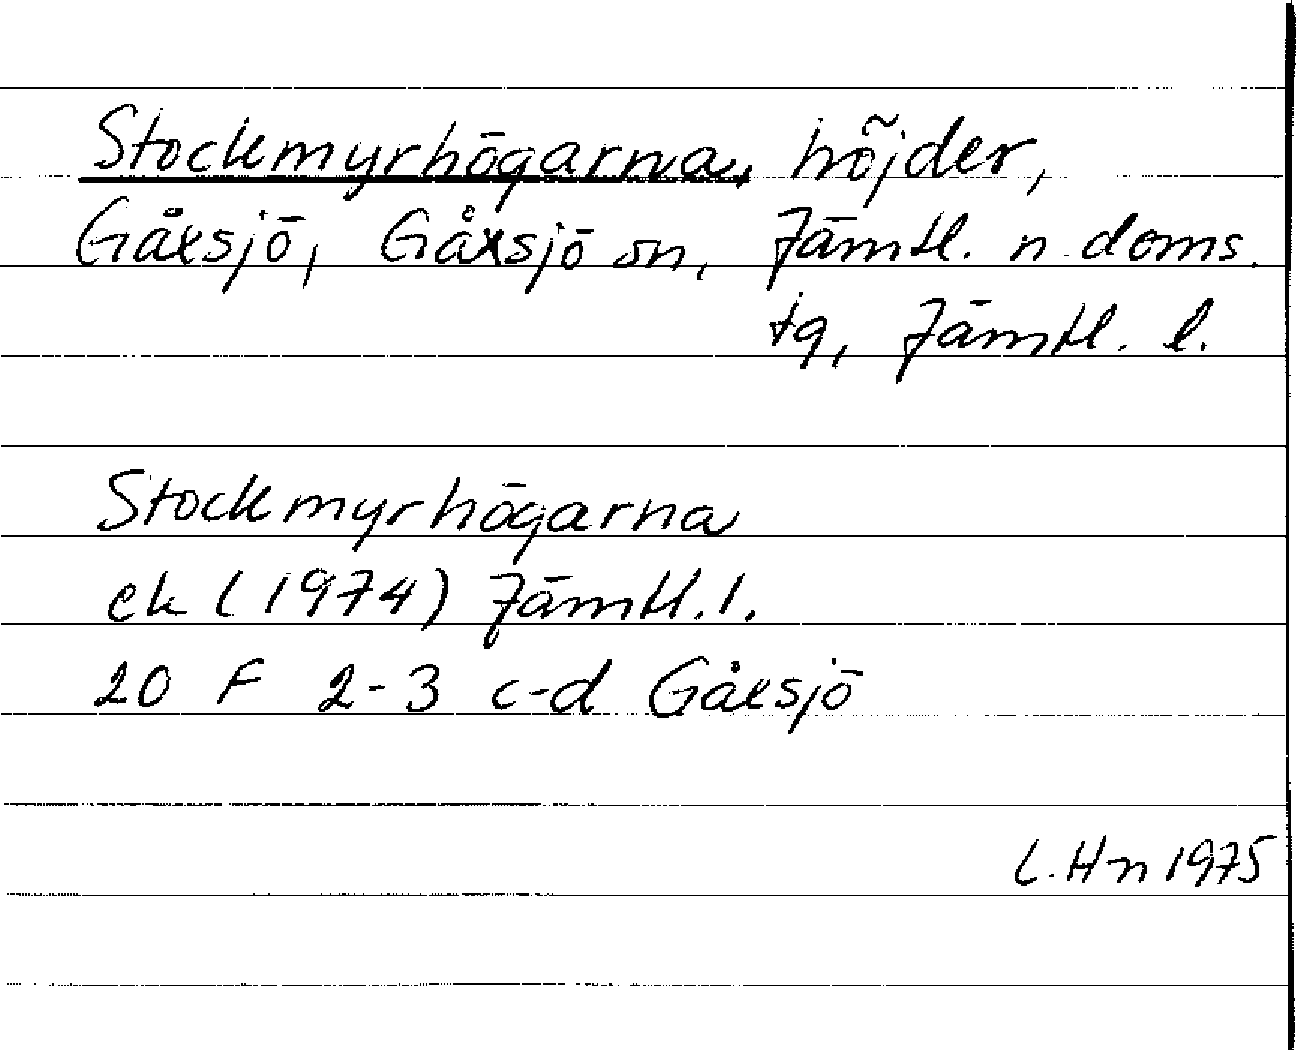 Stockmyrhögarna, höjder,
Gåxsjö, Gåxsjö sn, Jämtl. n. doms.
tg, Jämtl. l.
Stockmyrhögarna
ek (1974) Jämtl. l.
20 F 2-3 c-d Gåxsjö
L. Hn 1975